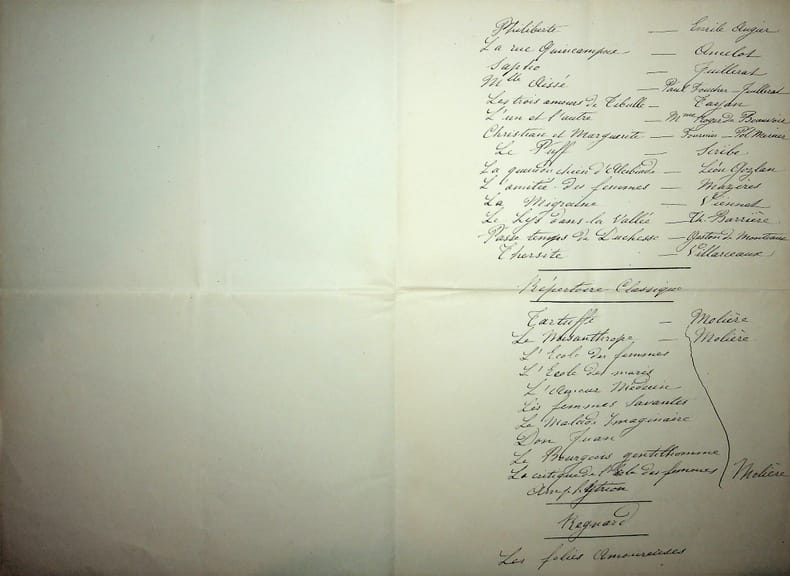 Philiberte — Emile Augier
La rue Quincampoix — Ancelot
Sapho — Juillerat
Mlle Aïssé — Paul Foucher - Juillerat
Les trois amours de Tibulle — Tayan
L'un et l'autre — Mme Roger de Beauvoir
Christian et Marguerite — Fournier - Pol Mercier
Le Puff — Scribe
La queue du chien d'Alcibiade — Léon Gozlan
L'amitié des femmes — Mazères
La Migraine — Viennet
Le Lys dans la Vallée — Th. Barrière
Passe temps de Duchesse — Gaston de Monteaux
Thersite — Villarceaux
Répertoire Classique
Tartuffe — Molière
Le Misanthrope — Molière
L'Ecole des femmes
L'Ecole des maris
L'Amour Médecin
Les femmes Savantes
Le Malade Imaginaire
Don Juan
Le Bourgeois gentilhomme
La critique de l'Ecole des femmes Molière
Amphytrion
Regnard
Les folies Amoureuses